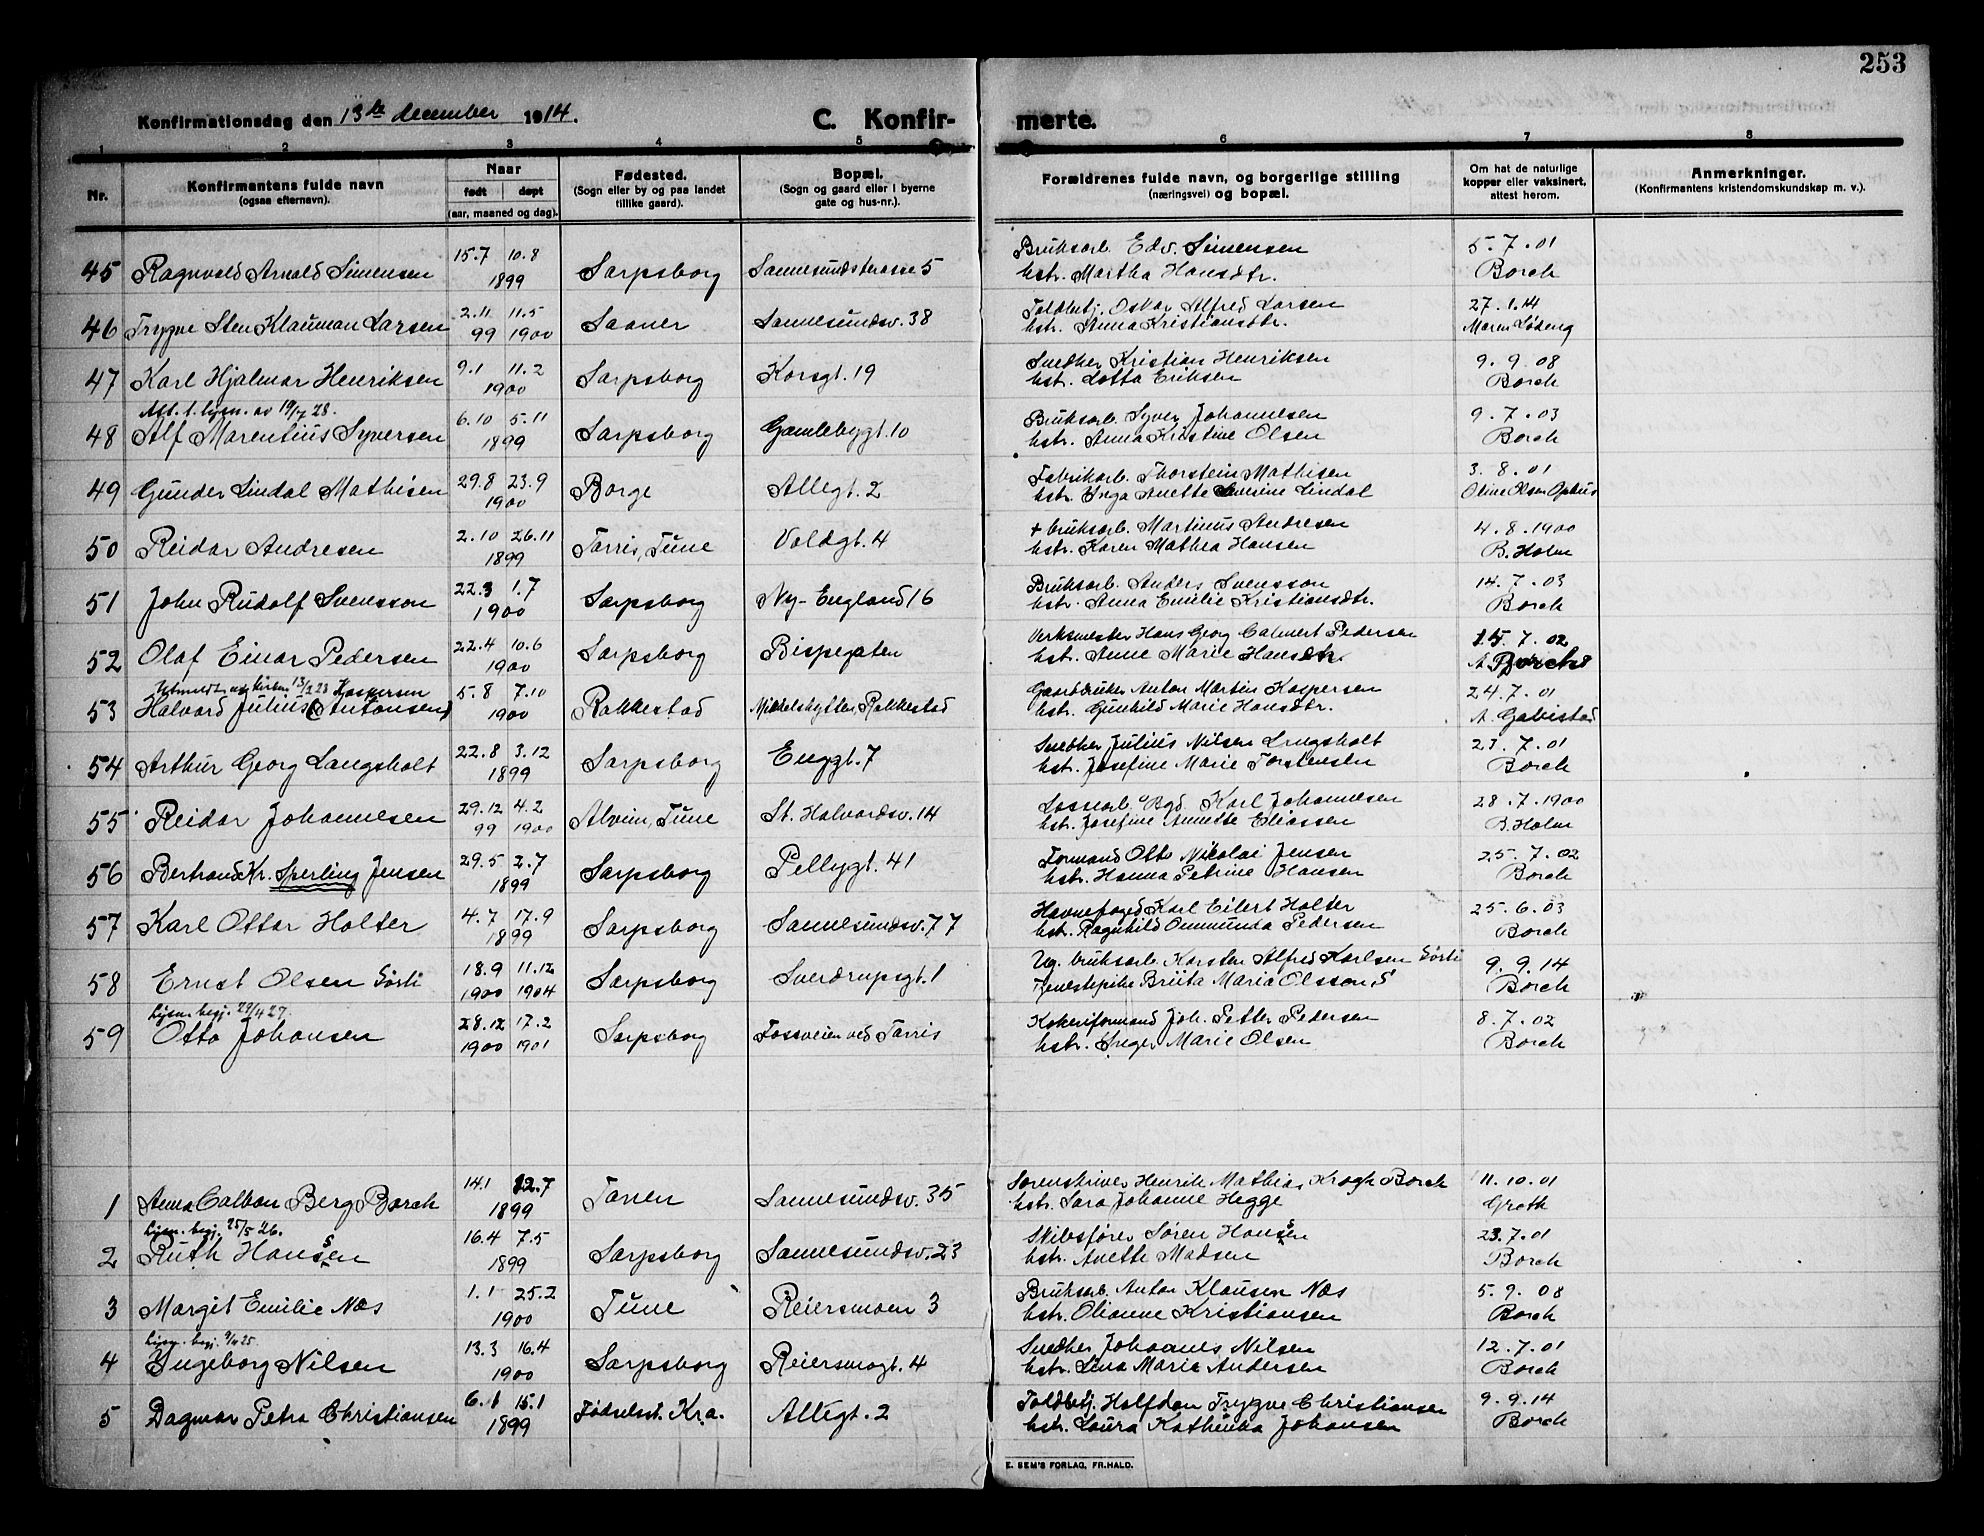 253
Konfirmationsdag den 13de december 1914.
C. Konfir- merte.
1 2 3 4 5 6 7 8
Nr.
Konfirmantens fulde navn
(ogsaa efternavn).
Naar
født døpt
(aar, maaned og dag).
Fødested.
(Sogn eller by og paa landet
tillike gaard).
Bopæl.
(Sogn og gaard eller i byerne
gate og hus-nr.).
Forældrenes fulde navn, og borgerlige stilling
(næringsvei) og bopæl.
Om hat de naturlige
kopper eller vaksinert,
attest herom.
Anmerkninger.
(Konfirmantens kristendomskundskap m. v.).
15.7 10.8 Bruksarb. Edv. Simensen 5.7.01
45 Ragnvald Arnold Simensen 1899 Sarpsborg Sannesundstrasse 5 hstr. Martha Hansdtr. Borch
2.11 11.5 Toldbetj. Oskar Alfred Larsen 27.1.14
46 Trygve Sten Klauman Larsen 99 1900 Saaner Sannesundsv. 38 hstr. Anna Kristiansdtr. Maren Lødeng
9.1 11.2 Snedker Kristian Henriksen 9.9.08
47 Karl Hjalmar Henriksen 1900 Sarpsborg Korsgt. 19 hstr. Lotta Eriksen Borch
Att. t. lysn. av 19/7 28. 6.10 5.11 Bruksarb. Syver Johannesen 9.7.03
48 Alf Marentius Syversen 1899 Sarpsborg Gamlebygt. 10 hstr. Anna Kristine Olsen Borch
29.8 23.9 Fabrikarb. Thorstein Mathisen 3.8.01
49 Gunder Lindal Mathisen 1900 Borge Allegt. 2 hstr. Inga Anette Severine Lindal Oline Olsen Ophus
2.10 26.11 + bruksarb. Martinus Andresen 4.8.1900
50 Reidar Andresen 1899 Tarris, Tune Voldgt. 4 hstr. Karen Mathea Hansen B. Holm
22.3 1.7 Bruksarb. Anders Svensson 14.7.03
51 John Rudolf Svensson 1900 Sarpsborg Ny-England 16 hstr. Anna Emilie Kristiansdtr. Borch
22.4 10.6 Verksmester Hans Georg Calmert Pedersen 15.7.02
52 Olaf Einar Pedersen 1900 Sarpsborg Bispegaten hstr. Anne Marie Hansdtr. Borch
Utmeldt av kirken 13/2 23 Kaspersen 5.8 7.10 Gaardbruker Anton Martin Kaspersen 24.7.01
53 Halvard Julius (Antonsen) 1900 Rakkestad Mikkelshytten, Rakkestad hstr. Gunhild Marie Hansdtr. A. Gabestad
22.8 3.12 Snedker Julius Nilsen Langsholt 23.7.01
54 Arthur Georg Langsholt 1899 Sarpsborg Enggt. 7 hstr. Josefine Marie Torstensen Borch
29.12 4.2 Lossearb. Karl Johannesen 28.7.1900
55 Reidar Johannesen 99 1900 Alvim, Tune St. Halvardsv. 14 hstr. Josefine Annette Eliassen B. Holm
29.5 2.7 Formand Otto Nikolai Jensen 25.7.02
56 Bertrand Kr. Sperling Jensen 1899 Sarpsborg Pellygt. 41 hstr. Hanna Petrine Hansen Borch
4.7 17.9 Havnefoged Karl Eilert Holter 25.6.03
57 Karl Ottar Holter 1899 Sarpsborg Sannesundsv. 77 hstr. Ragnhild Ommunda Pedersen Borch
18.9 11.12 Ug. bruksarb. Karsten Alfred Karlsen Sørli 9.9.14
58 Ernst Olsen Sørli 1900 1904 Sarpsborg Sverdrupsgt. 1 Tjenestepike Britta Maria Olsson, S Borch
Lysn. begj. 29/4 27. 28.12 17.2 Kokeriformand Joh. Petter Pedersen 8.7.02
59 Otto Johansen 1900 1901 Sarpsborg Fossveien ved Tarris hstr. Inger Marie Olsen Borch
14.1 12.7 Sorenskriver Henrik Mathias Krogh Borch 11.10.01
1 Anna Calban Berg Borch 1899 Tanen Sannesundsv. 35 hstr. Sara Johanne Hegge Groth
Lysn. begj. 25/5 26. 16.4 7.5 Skibsfører Søren Hansen 23.7.01
2 Ruth Hansen 1899 Sarpsborg Sannesundsv. 23 hstr. Anette Madsen Borch
1.1 25.2 Bruksarb. Anton Klausen Næs 5.9.08
3 Margit Emilie Næs 1900 Tune Reiersmoen 3 hstr. Olianne Kristiansen Borch
Lysn. begj. 9/4 25. 13.3 16.4 Snedker Johannes Nilsen 12.7.01
4 Ingeborg Nilsen 1900 Sarpsborg Reiersmogt. 4 hstr. Lina Marie Andersen Borch
6.1 15.1 Toldbetj. Halfdan Trygve Christiansen 9.9.14
5 Dagmar Petra Christiansen 1899 Fødselsst. Kra. Allegt. 2 hstr. Laura Kathinka Johansen Borch
E. SEM'S FORLAG, FR.HALD.